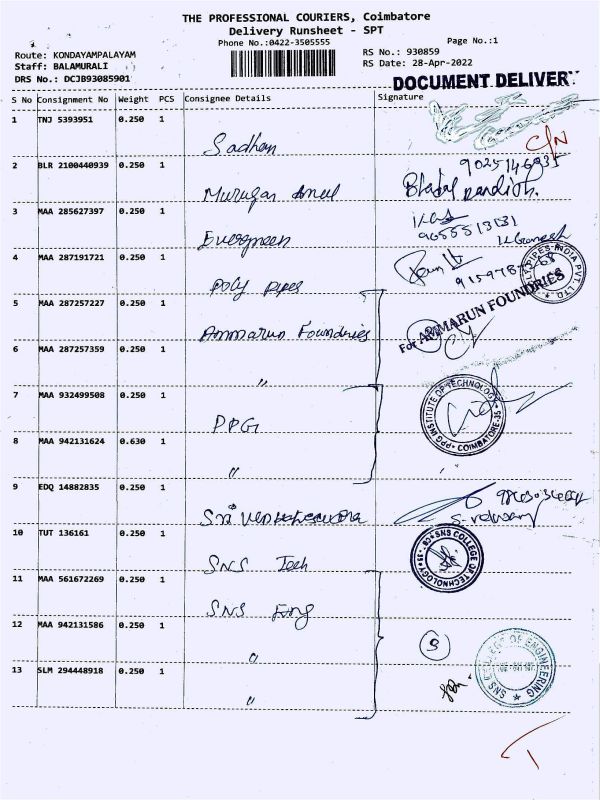 THE PROFESSIONAL COURIERS, Coimbatore
Delivery Runsheet - SPT
Phone No.:0422-3505555
Page No.:1
Route: KONDAYAMPALAYAM
Staff: BALAMURALI
DRS No.: DCJB93085901
RS No.: 930859
RS Date: 28-Apr-2022
DOCUMENT DELIVERY
S No Consignment No Weight PCS Consignee Details Signature
1 TNJ 5393951 0.250 1 Sadhan C/N
2 BLR 2100440939 0.250 1 Murugan
3 MAA 285627397 0.250 1 Evergreen
4 MAA 287191721 0.250 1 Poly Pipes
PIPES INDIA PVT. LTD.
5 MAA 287257227 0.250 1 Ammarun Foundries
For AMMARUN FOUNDRIES
6 MAA 287257359 0.250 1 "
7 MAA 932499508 0.250 1 PPG
PPG INSTITUTE OF TECHNOLOGY COIMBATORE-35
8 MAA 942131624 0.630 1 "
9 EDQ 14882835 0.250 1 Sri Venkateswara
10 TUT 136161 0.250 1 SNS Tech
SNS COLLEGE OF TECHNOLOGY
11 MAA 561672269 0.250 1 SNS Eng
12 MAA 942131586 0.250 1 "
3
SNS COLLEGE OF ENGINEERING
13 SLM 294448918 0.250 1 "